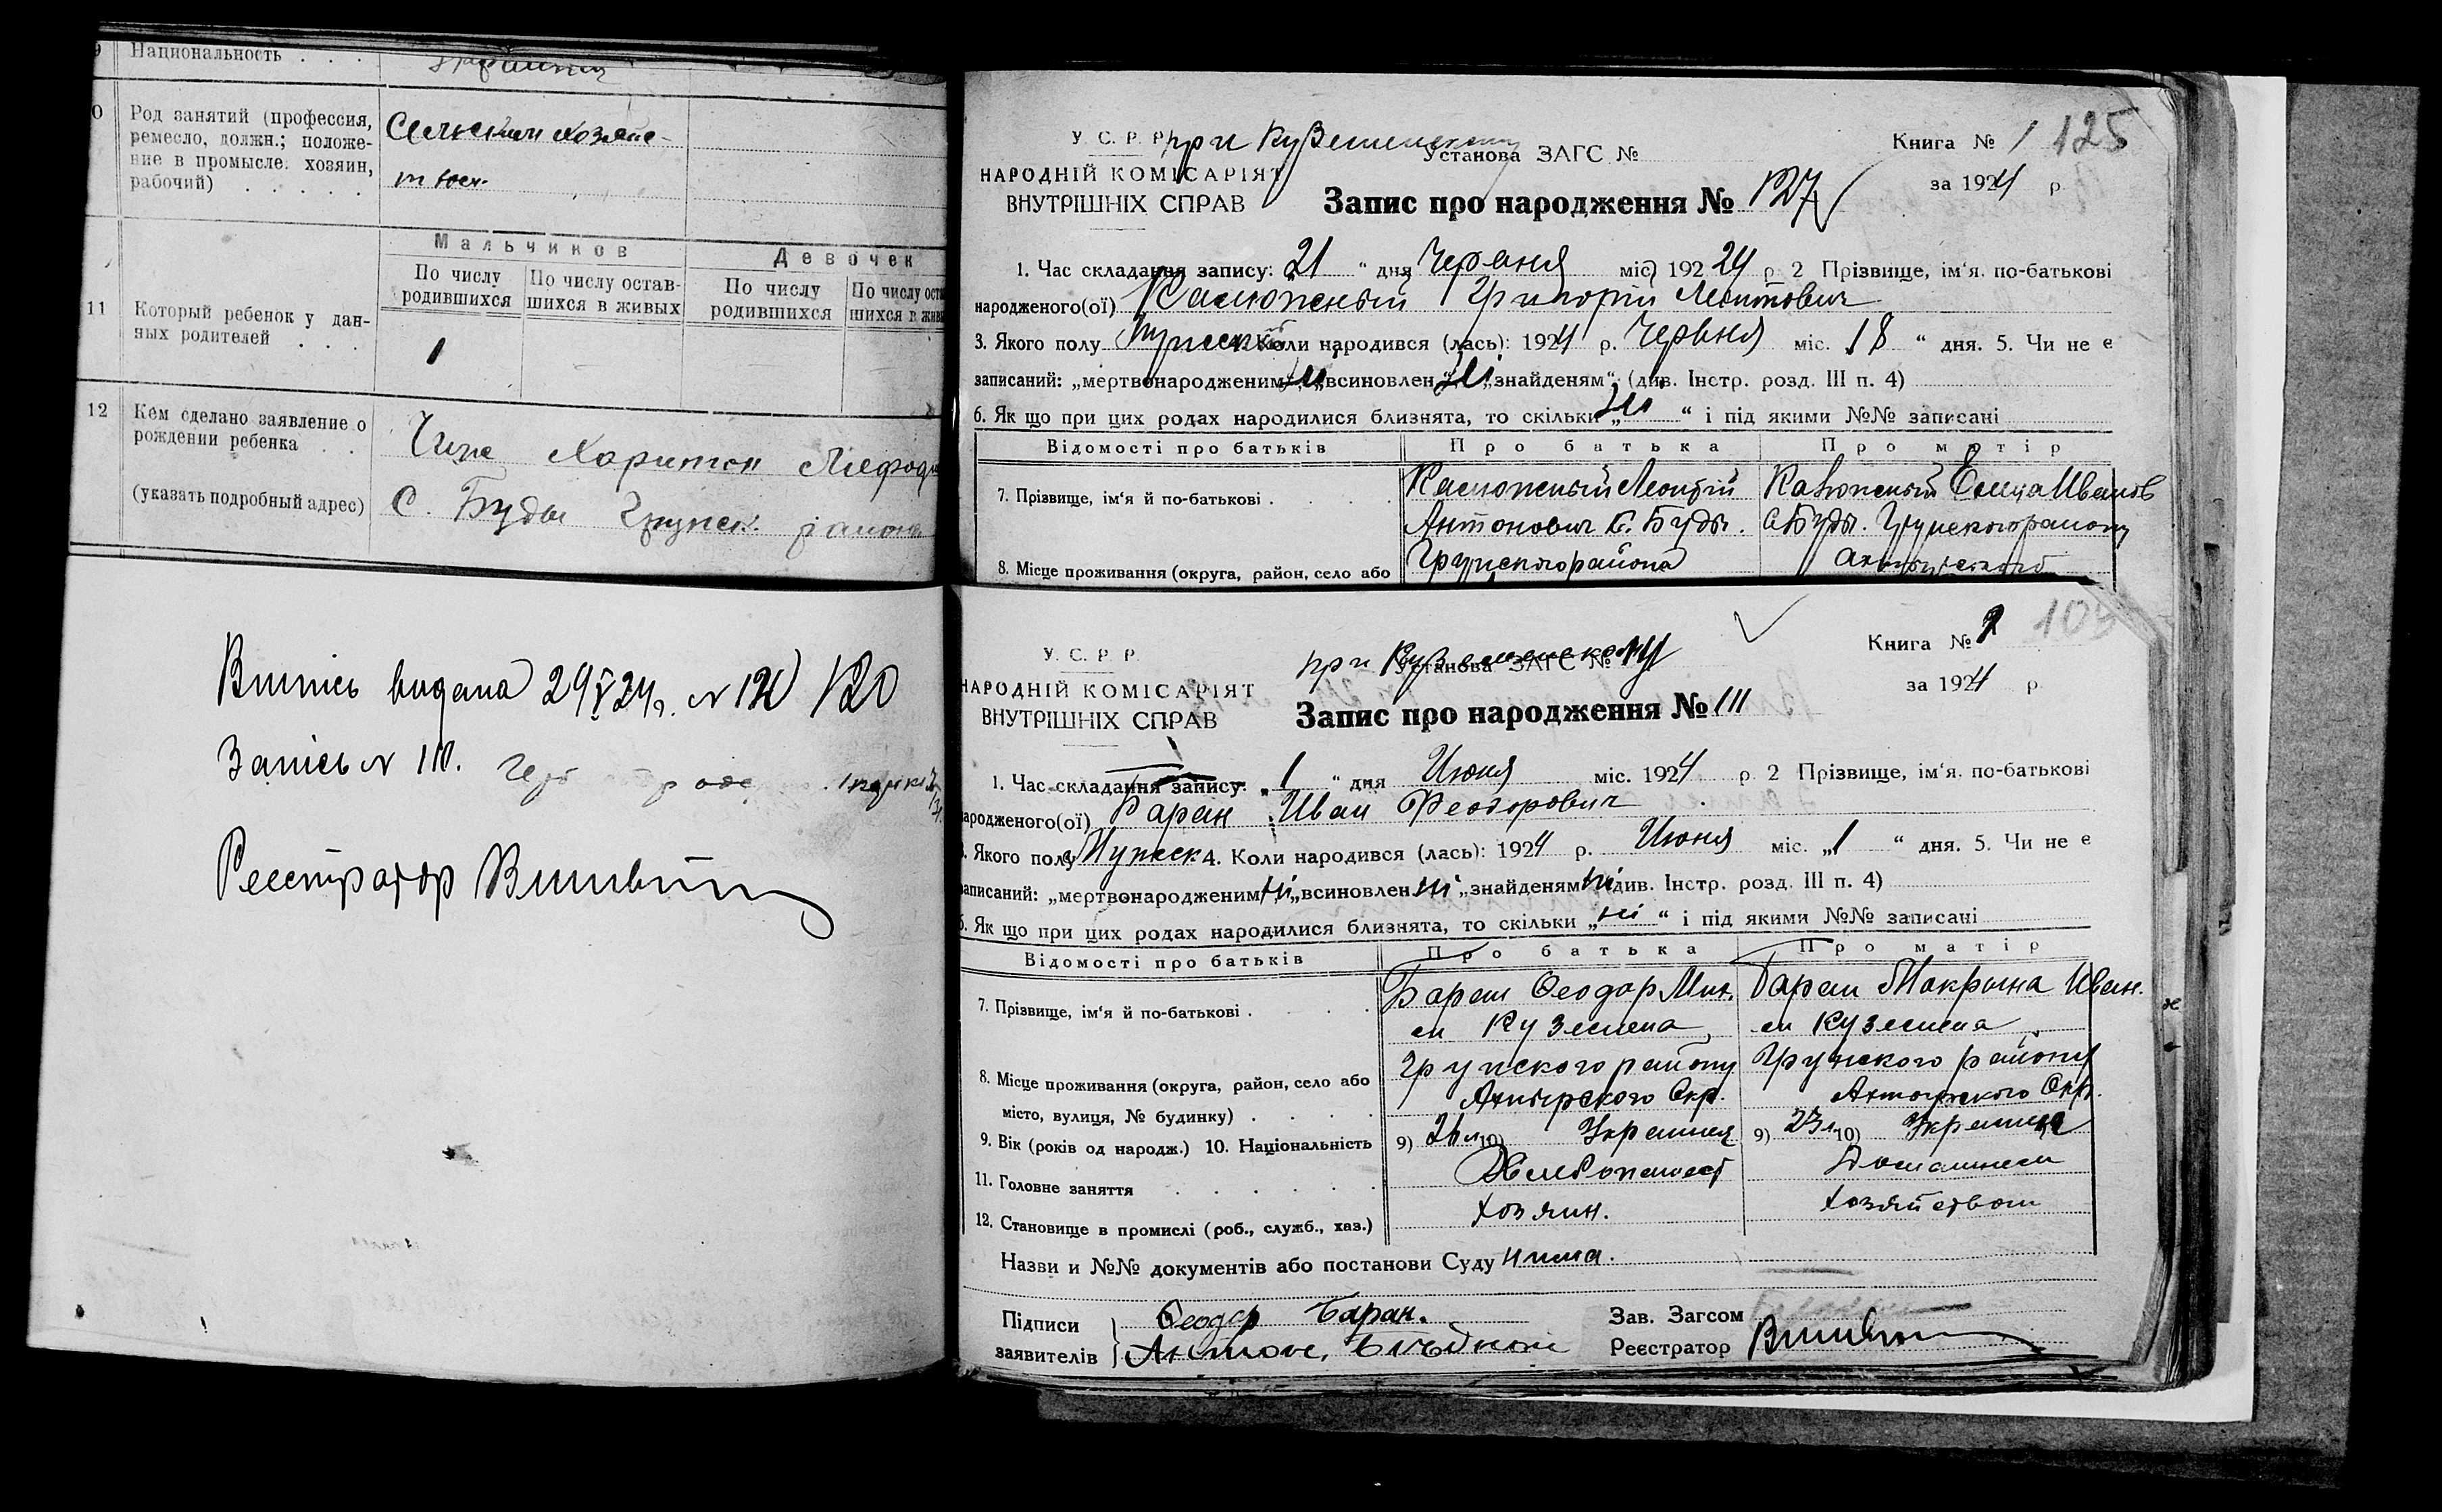 9 Национальность . . .
10 Род занятий (профессия, ремесло, должн.; положение в промысле: хозяин, рабочий) . . . . .
Сельским хозяйс-
твом.
Мальчиков Девочек
По числу родившихся По числу оставшихся в живых По числу родившихся По числу оста шихся в жив
11 Который ребенок у данных родителей . . .
1
12 Кем сделано заявление о рождении ребенка . .
Харитон Мефод
(указать подробный адрес) С. Буды Грунск. района
Випись видана 29/V 24 г. № 120 120
Запісь № 110.
Реєстратор
У. С. Р. Р. при Установа ЗАГС № Книга № 1 125
НАРОДНІЙ КОМІСАРІЯТ
ВНУТРІШНІХ СПРАВ
за 1924 р
Запис про народження № 127
1. Час складання запису: 21 “ дня Червня міс. 192 24 р 2 Прізвище, ім‘я. по-батькові
народженого(ої) Григорій Леонтович
3. Якого полу Мужеск 4. Коли народився (лась): 1924 р. Червня міс. 18 “ дня. 5. Чи не є
записаний: „мертвонародженим“ ні, „всиновлен ні „знайденям“ (див. Інстр. розд. III п. 4)
6. Як що при цих родах народилися близнята, то скільки „ ні “ і під якими №№ записані
Відомості про батьків Про батька Про матір
7. Прізвище, ім‘я й по-батькові . . . .
Леонтій Иванов
Антонович С. Буды. С Буды. Грунского району
8. Місце проживання (округа, район, село або Грунского района
У. С. Р. Р. при Куземенскому Установа ЗАГС № Книга № 2 103
НАРОДНІЙ КОМІСАРІЯТ
ВНУТРІШНІХ СПРАВ
за 1924 р
Запис про народження № 111
1. Час складання запису: „ 1 “ дня Июня міс. 1924 р 2 Прізвище, ім‘я. по-батькові
народженого(ої) Баран Иван Феодорович
3. Якого полу Мужеск 4. Коли народився (лась): 1924 р. Июня міс. „1 “ дня. 5. Чи не є
записаний: „мертвонародженим ні „всиновлен ні „знайденям ні див. Інстр. розд. III п. 4)
6. Як що при цих родах народилися близнята, то скільки „ ні “ і під якими №№ записані
Відомості про батьків Про батька Про матір
7. Прізвище, ім‘я й по-батькові . . . .
Баран Феодор Мих. Баран Макрына Иван.
см Куземена см Куземена
8. Місце проживання (округа, район, село або Грунского району Грунского району
місто, вулиця, № будинку) . . . . Ахтырского Окр. Ахтырского Окр.
9. Вік (років од народж.) 10. Національність 9) 26 л 10) Украинец 9) 23 л 10) Украинка
11. Головне заняття . . . . . . Хлебопашест Домашнем
12. Становище в промислі (роб., служб., хаз.) хозяин. хозяйством
Назви и №№ документів або постанови Суду нима.
Підписи Феодор Баран. Зав. Загсом
заявителів Антон Реєстратор